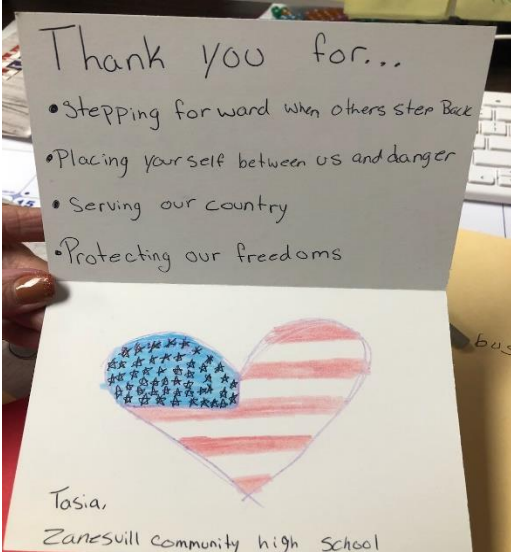 Thank you for...
• Stepping forward when others step Back
• Placing yourself between us and danger
• Serving our country
• Protecting our freedoms
Tasia,
Zanesvill community high school